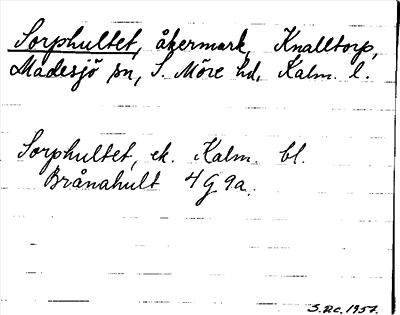 Sorphultet, åkermark, Knalltorp,
Madesjö sn, S. Möre hd, Kalm. l.
Sorphultet, ek. Kalm. bl.
Brånahult 4G9a.
S.Rc. 1957.